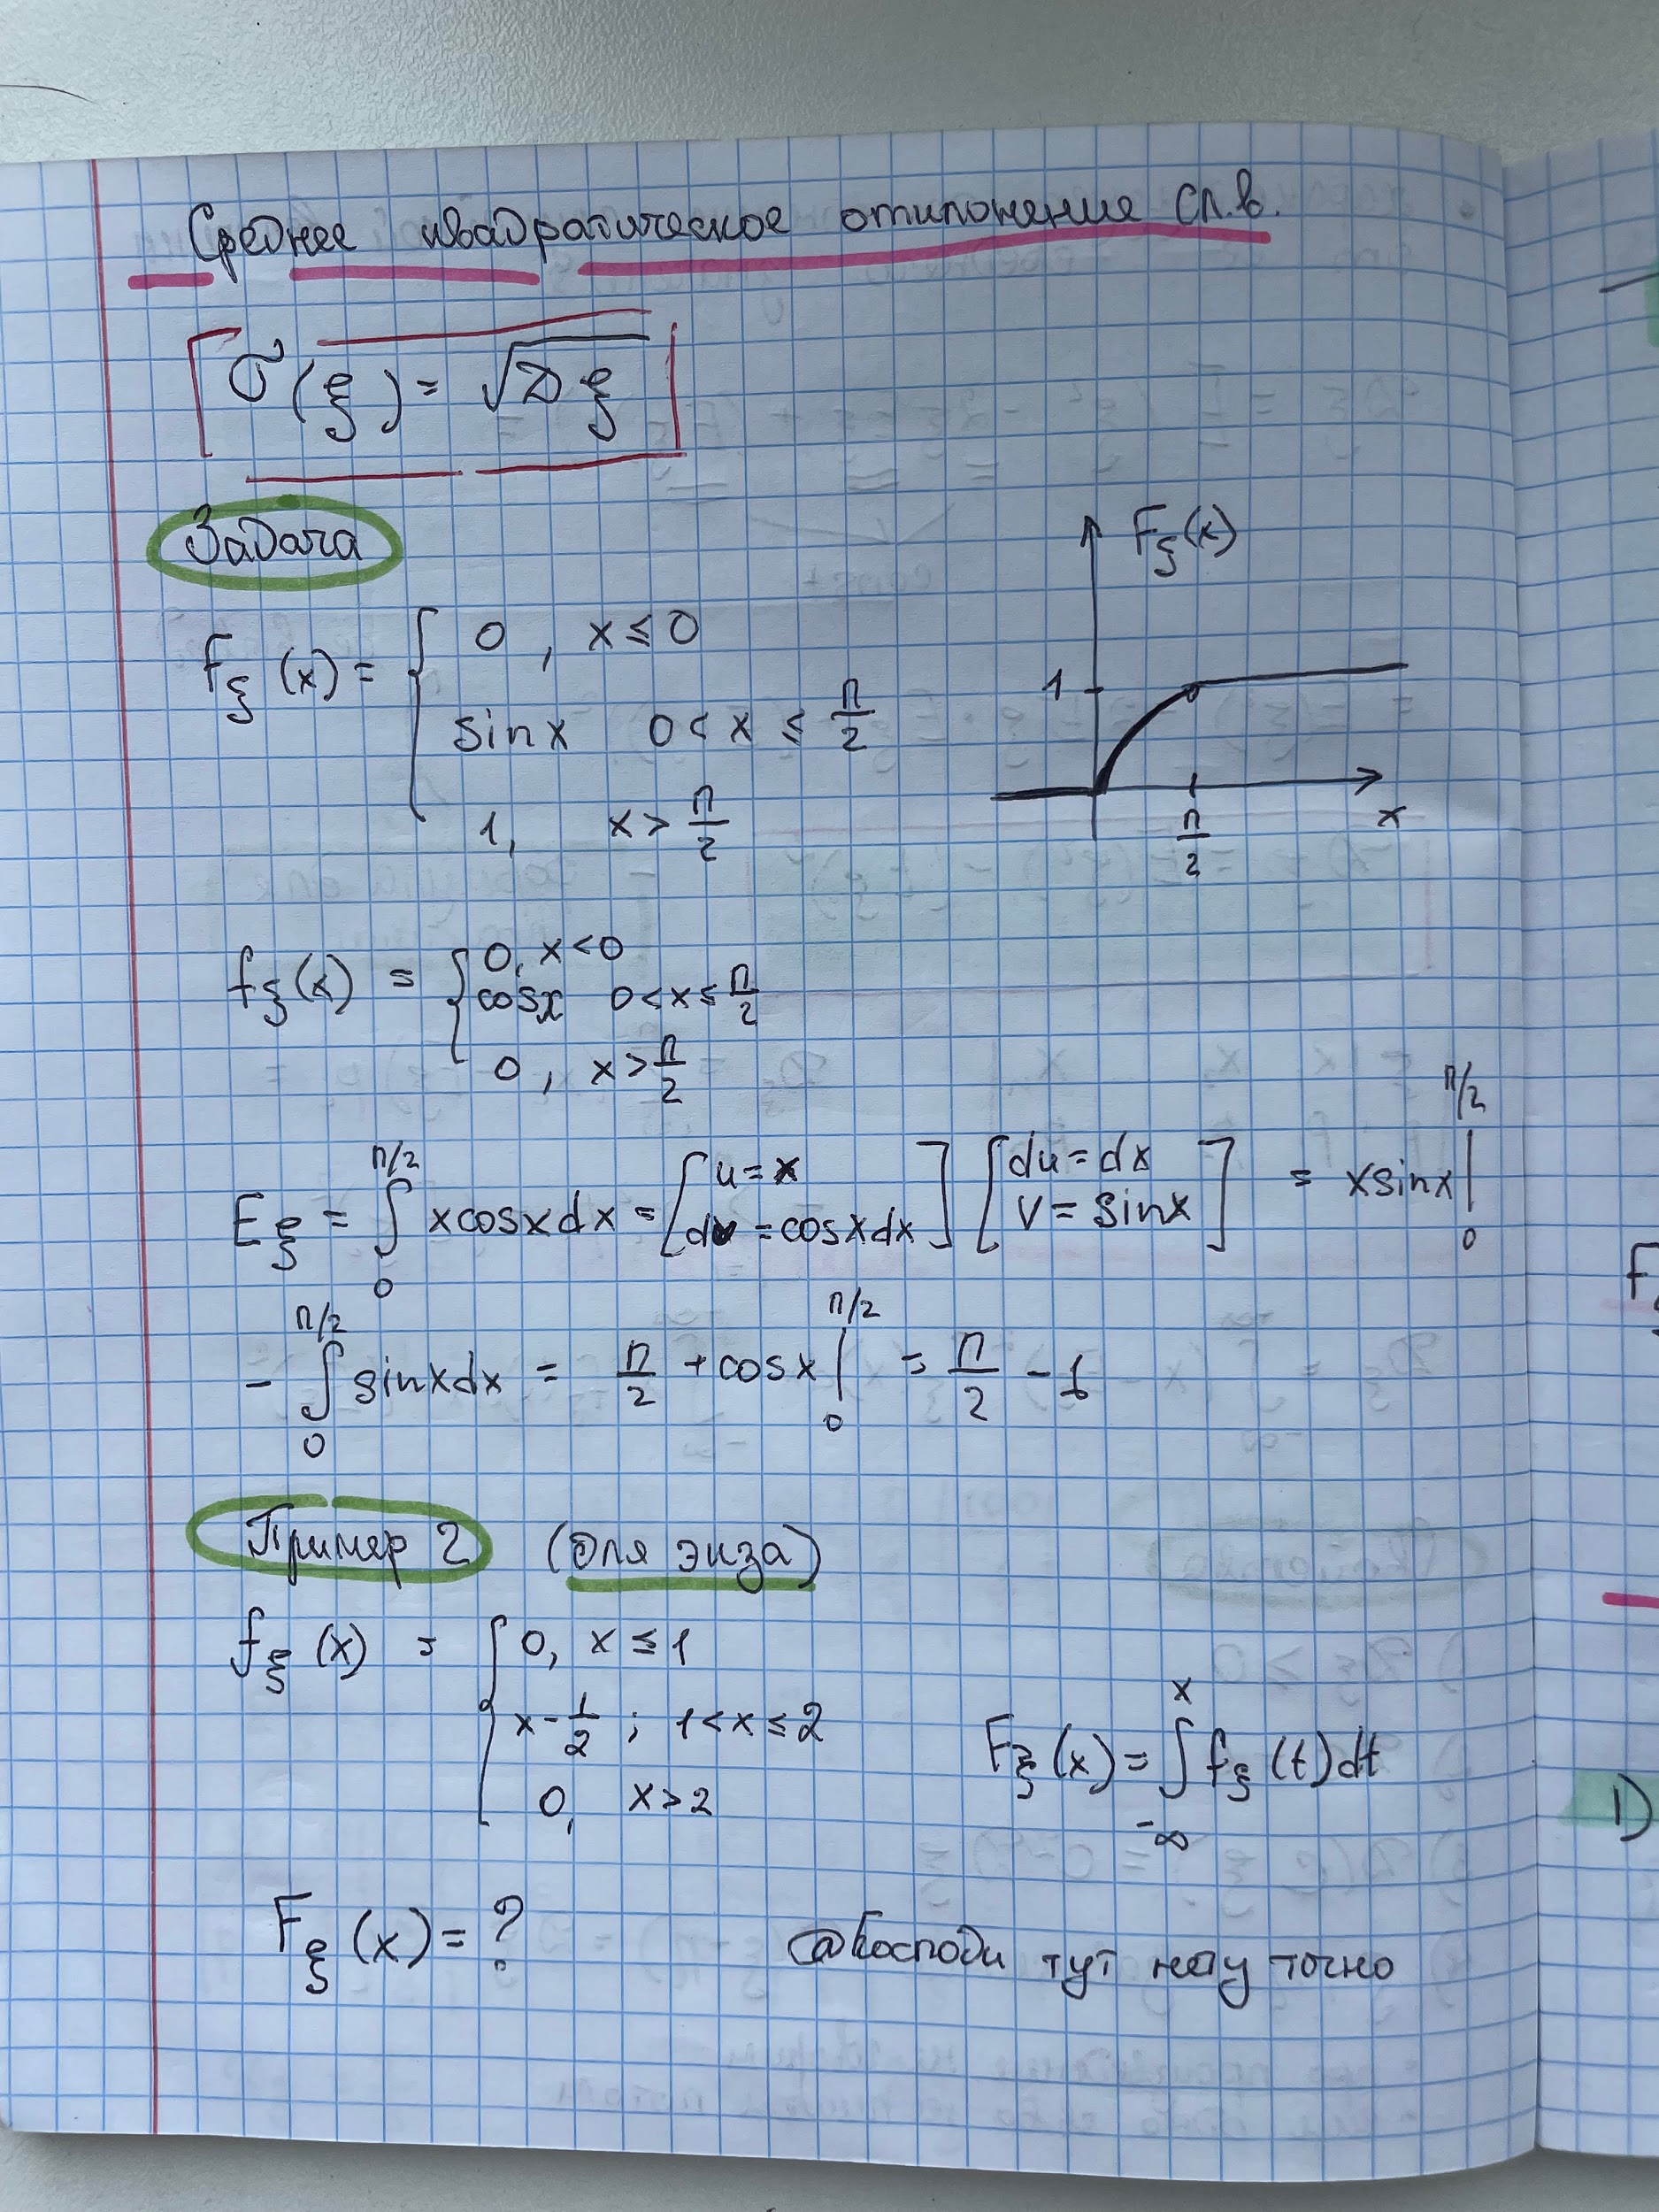 Среднее квадратическое отклонение сл.в.
σ(ξ) = √Dξ
Задача
Fξ(x)
Fξ(x) = { 0, x ≤ 0
sinx 0 < x ≤ π/2
1, x > π/2
1
π/2
x
fξ(x) = { 0, x < 0
cosx 0 < x ≤ π/2
0, x > π/2
Eξ = ∫₀^(π/2) xcosxdx = [u = x dv = cosxdx] [du = dx v = sinx] = xsinx |₀^(π/2)
- ∫₀^(π/2) sinxdx = π/2 + cosx |₀^(π/2) = π/2 - 1
Пример 2 (для экза)
fξ(x) = { 0, x ≤ 1
x - 1/2 ; 1 < x ≤ 2
0, x > 2
Fξ(x) = ∫_(-∞)^x fξ(t)dt
Fξ(x) = ?
@Господи тут точно
1)